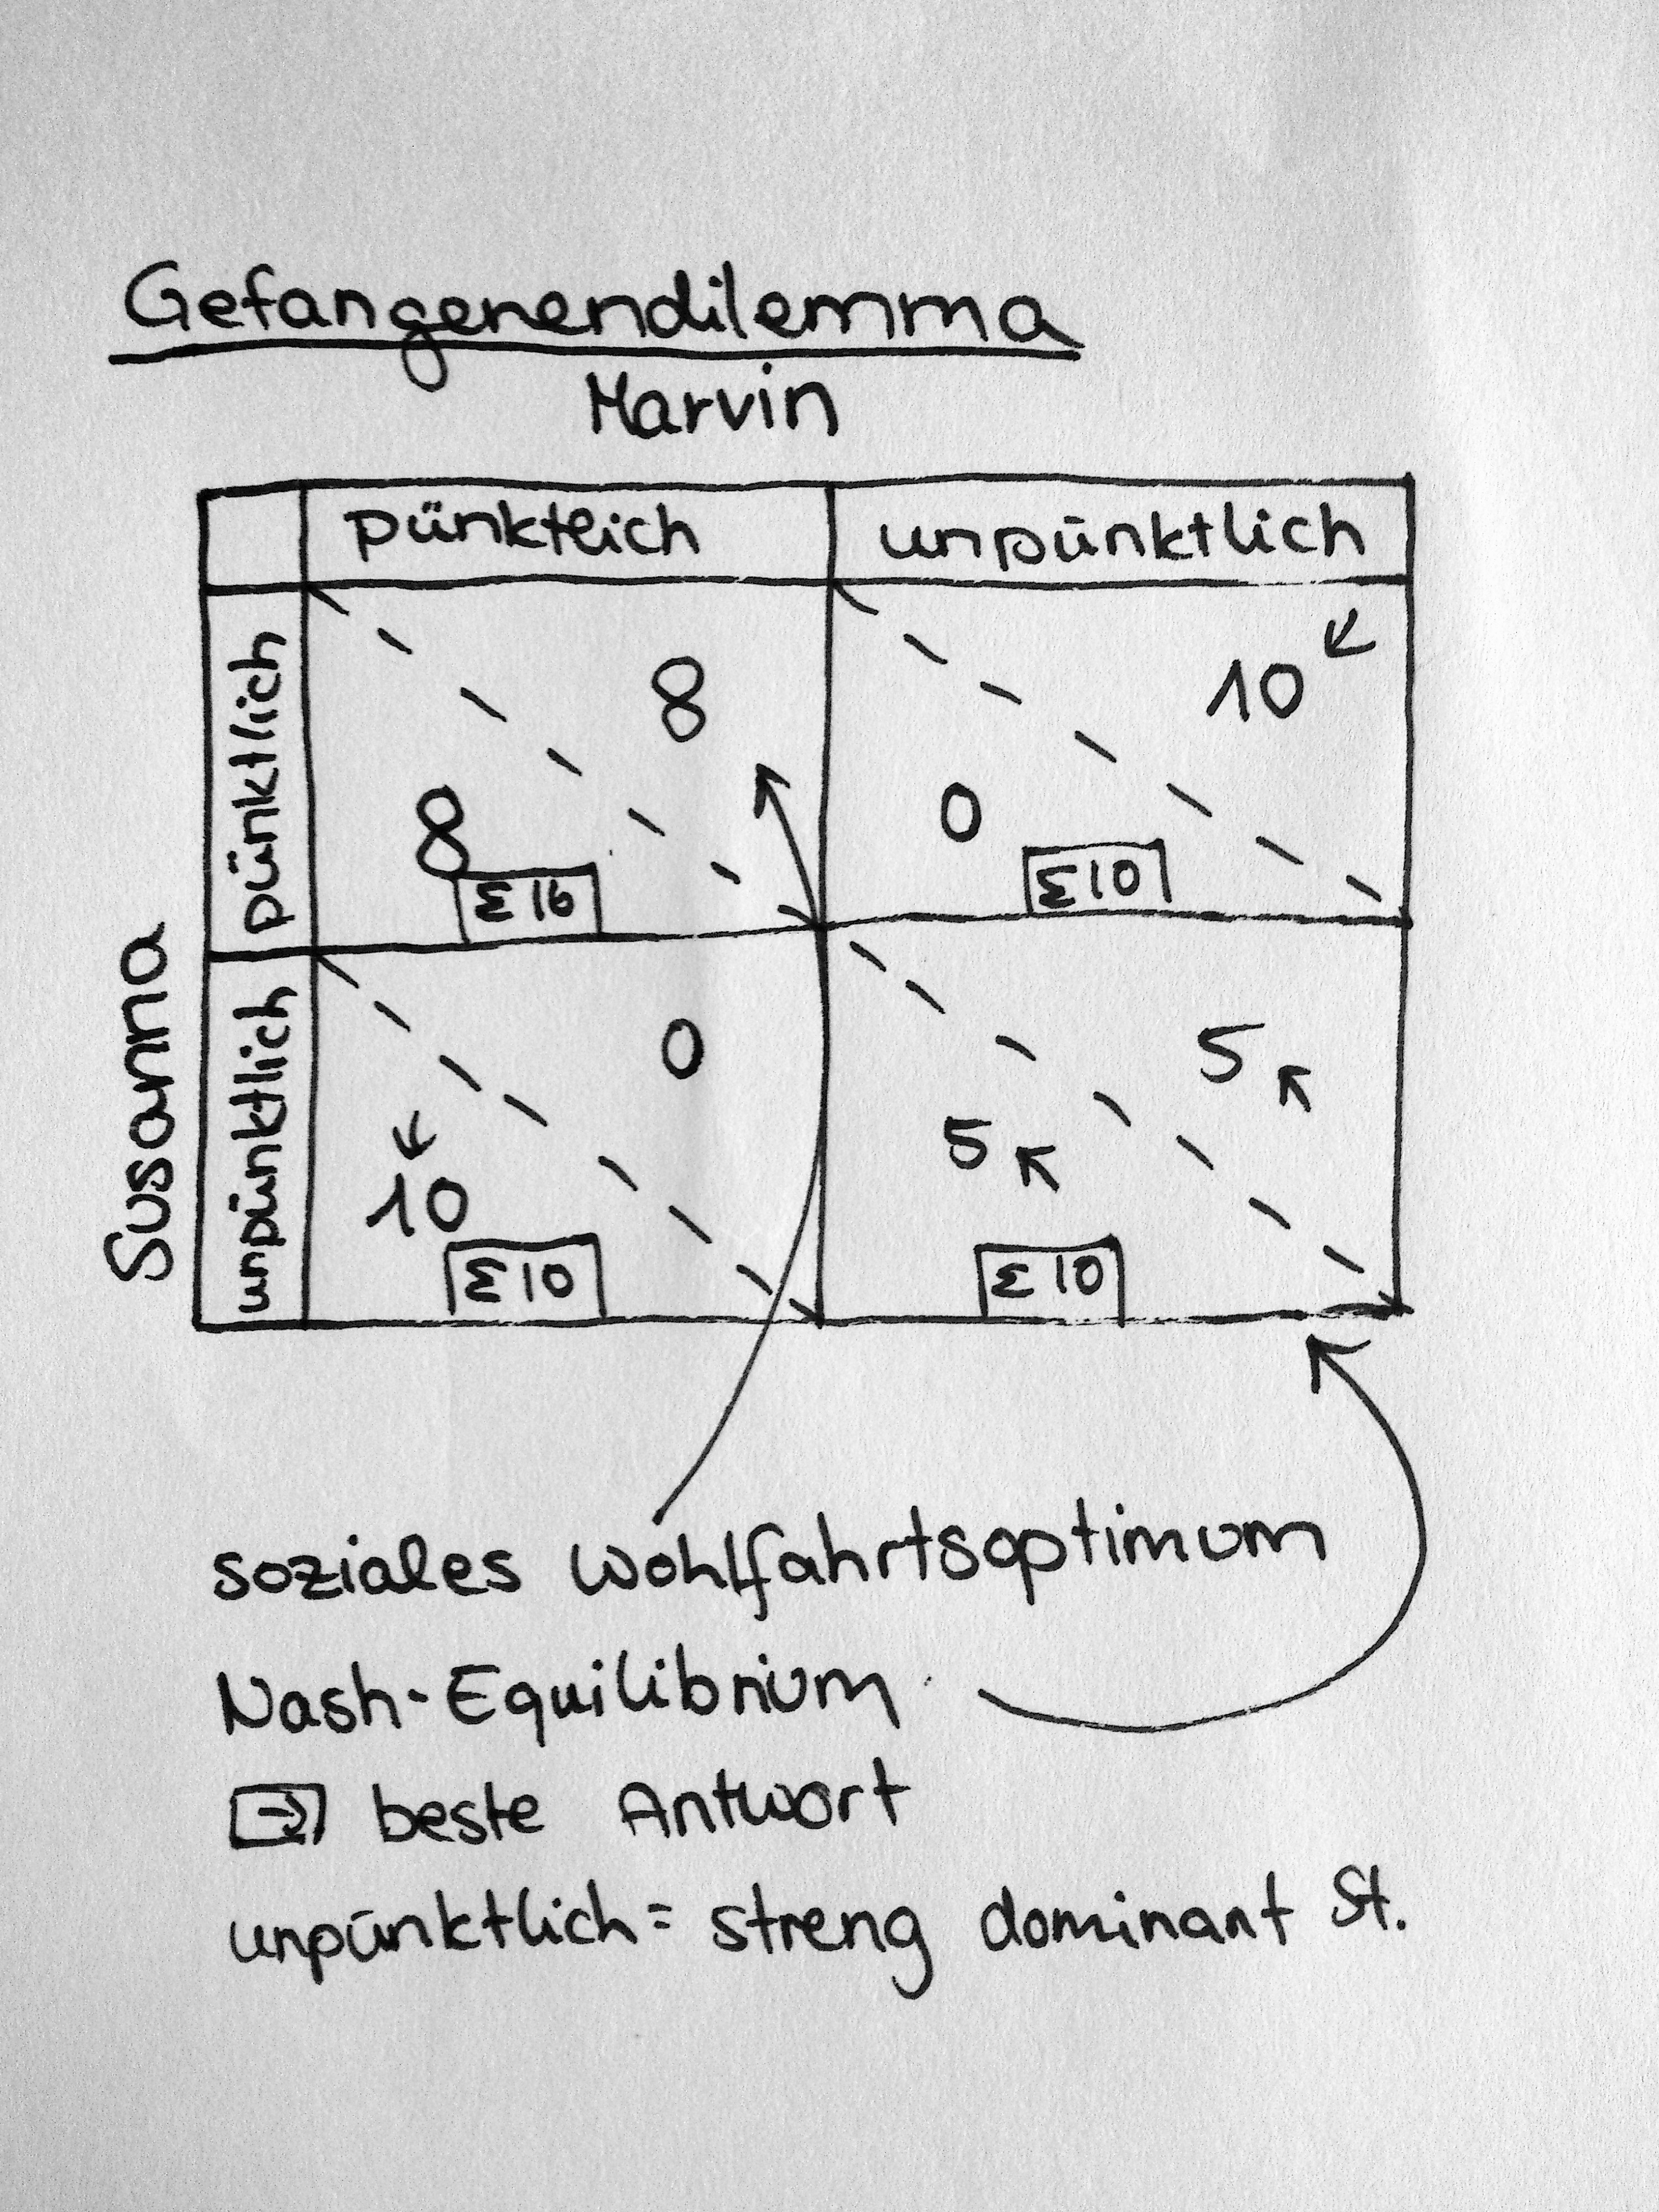 Gefangenendilemma
Marvin
pünktlich unpünktlich
Susanna
pünktlich
8 10
8 0
Σ16 Σ10
unpünktlich
0 5
10 5
Σ10 Σ10
soziales Wohlfahrtsoptimum
Nash-Equilibrium
→ beste Antwort
unpünktlich = streng dominant St.